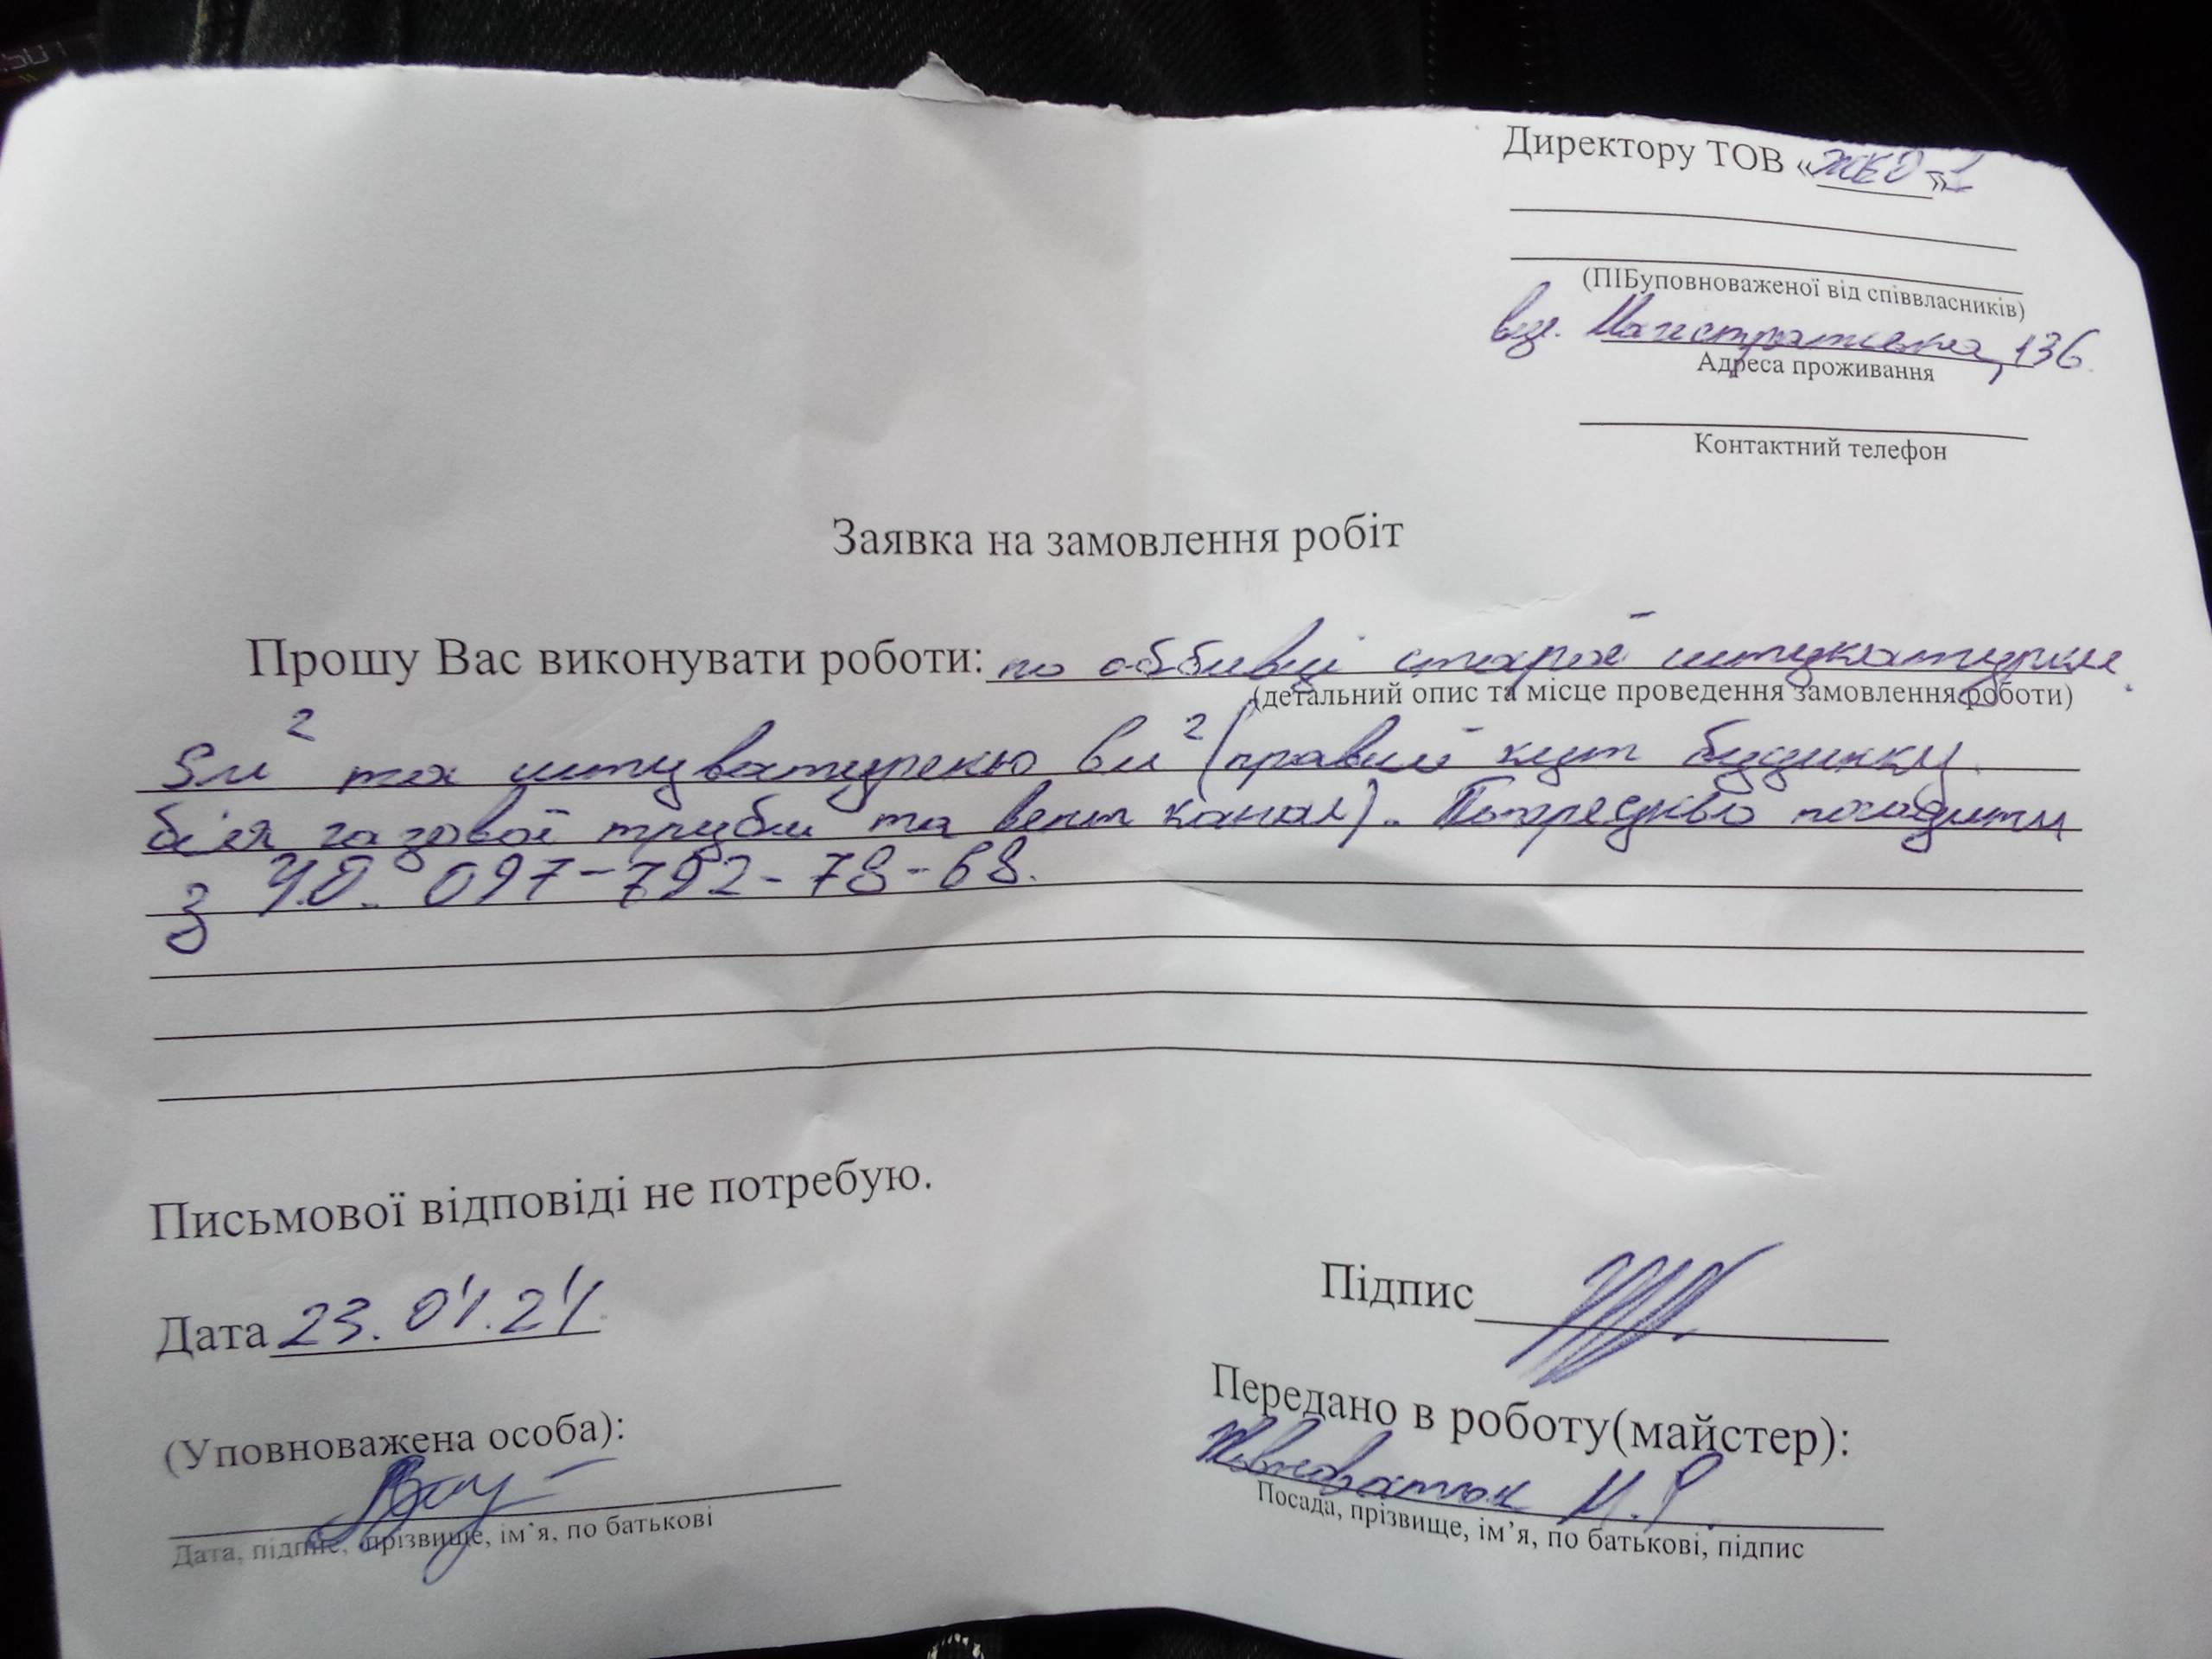 Директору ТОВ «ЖЕО-1»
(ПІБуповноваженої від співвласників)
вул. Магістратська, 136
Адреса проживання
Контактний телефон
Заявка на замовлення робіт
Прошу Вас виконувати роботи: по оббивці старої штукатурки
(детальний опис та місце проведення замовлення роботи)
5м² та штукатуркою 6м² (правий кут будинку
біля газової труби та вент канал). Попередньо погодити
з У.О. 097-792-78-68.
Письмової відповіді не потребую.
Підпис
Дата 23.04.24.
Передано в роботу(майстер):
(Уповноважена особа):
Посада, прізвище, ім’я, по батькові, підпис
Дата, підпис, прізвище, ім`я, по батькові